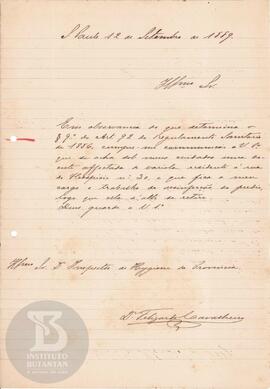 S. Paulo 12 de Setembro de 1889.
Illmo Sr.
Em observancia do que determina o
§ 9º do Art 92 do Regulamento Sanitario
de 1886, cumpre me communicar a V. Sª
que se acha sob meus cuidados um
doente affectado de variola residente á rua
do Hospicio nº 30, e que fica a meu
cargo o trabalho de desinfecção do predio,
logo que elle se retire.
Deus guarde a V. Sª
Illmo Sr. Dr. Inspector de Hygiene da Provincia.
Dr.
INSTITUTO
BUTANTAN